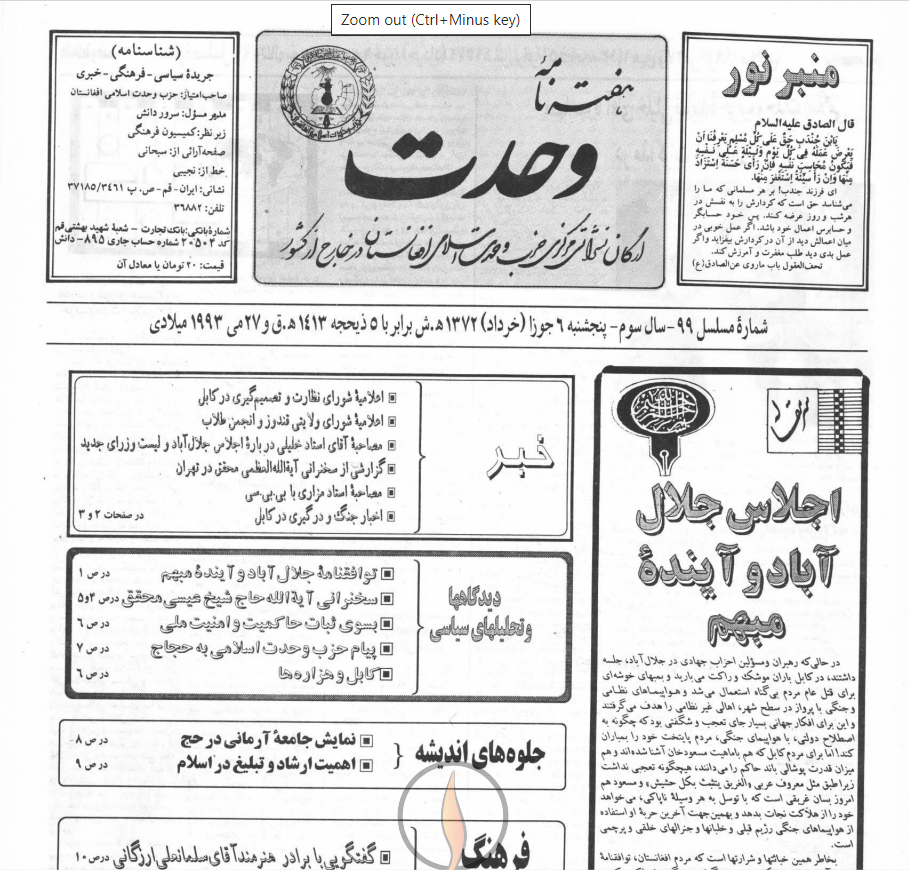 Zoom out (Ctrl+Minus key)
منبر نور
قال الصادق علیه‌السلام
یابن جندب حق علی کل مسلم یعرفنا ان
یعرض عمله فی کل یوم ولیلة علی نفسه
فیکون محاسب نفسه فان رأی حسنة استزاد
منها وان رأ سیئة استغفر منها.
ای فرزند جندب! بر هر مسلمانی که ما را
می‌شناسد حق است که کردارش را به نفسش در
هرشب و روز عرضه کند. پس خود حسابگر
و حسابرس اعمال خود باشد. اگر عمل خوبی در
میان اعمالش دید از آن در کردارش بیفزاید واگر
عمل بدی دید طلب مغفرت و آمرزش کند.
تحف‌العقول باب ماروی عن‌الصادق(ع)
هفته نامهٔ
وحدت
ارگان نشراتی مرکزی حزب وحدت اسلامی افغانستان در خارج از کشور
(شناسنامه)
جریدهٔ سیاسی- فرهنگی- خبری
صاحب‌امتیاز: حزب وحدت اسلامی افغانستان
مدیر مسؤل: سرور دانش
زیر نظر: کمیسیون فرهنگی
صفحه‌آرائی از: سبحانی
خط از: نجیبی
نشانی: ایران - قم - ص. پ ۳۷۱۸۵/۳۴۶۱
تلفن: ۳۶۸۸۲
شمارهٔ بانکی: بانک تجارت - شعبهٔ شهید بهشتی قم
کد ۲۰۵۰۴ شماره حساب جاری ۸۹۵- دانش
قیمت: ۲۰ تومان یا معادل آن
شمارهٔ مسلسل ۹۹- سال سوم- پنجشنبه ۶ جوزا (خرداد) ۱۳۷۲ ه‍.ش برابر با ۵ ذیحجه ۱۴۱۳ ه‍.ق و ۲۷ می ۱۹۹۳ میلادی
سرمقاله
اجلاس جلال
آباد و آیندهٔ
مبهم
در حالی‌که رهبران ومسؤلین احزاب جهادی در جلال‌آباد، جلسه
داشتند، در کابل باران موشک و راکت می‌بارید و بمبهای خوشه‌ای
برای قتل عام مردم بی‌گناه استعمال می‌شد و هواپیماهای نظامی
وجنگی با پرواز در سطح شهر، اهالی غیر نظامی را هدف می‌گرفتند
و این برای افکار جهانی بسیار جای تعجب و شگفتی بود که چگونه به
اصطلاح دولتی، با هواپیمای جنگی، مردم پایتخت خود را بمباران
کند! اما برای مردم کابل که هم باماهیت مسعودخان آشنا شده‌اند و هم
میزان قدرت پوشالی باند حاکم را می‌دانند، هیچگونه تعجبی نداشت
زیرا طبق مثل معروف عربی «الغریق یتشبث بکل حشیش» و مسعود هم
امروز بسان غریقی است که با توسل به هر وسیلهٔ ناپاکی، می‌خواهد
خود را از هلاکت نجات بدهد و بهمین‌جهت آخرین حربهٔ او استفاده
از هواپیماهای جنگی رژیم قبلی و خلبانها و جنرالهای خلقی و پرچمی
است.
بخاطر همین خباثتها و شرارتها است که مردم افغانستان، توافقنامهٔ
خبر
اعلامیهٔ شورای نظارت و تصمیم‌گیری در کابل
اعلامیهٔ شورای ولایتی قندوز و انجمن طلاب
مصاحبهٔ آقای استاد خلیلی در بارهٔ اجلاس جلال‌آباد و لیست وزرای جدید
گزارشی از سخنرانی آیةالله‌العظمی محقق در تهران
مصاحبهٔ استاد مزاری با بی.بی.سی
اخبار جنگ و درگیری در کابل
در صفحات ۲ و ۳
دیدگاهها
و تحلیلهای سیاسی
توافقنامهٔ جلال آباد و آیندهٔ مبهم در ص ۱
سخنرانی آیةالله حاج شیخ عیسی محقق در ص ۴و۵
بسوی ثبات حاکمیت و امنیت ملی در ص ۶
پیام حزب وحدت اسلامی به حجاج در ص ۷
کابل و هزاره‌ها در ص ۶
جلوه‌های اندیشه
نمایش جامعهٔ آرمانی در حج در ص ۸
اهمیت ارشاد و تبلیغ در اسلام در ص ۹
فرهنگ
گفتگویی با برادر هنرمند آقای سلمانعلی ارزگانی در ص ۱۰